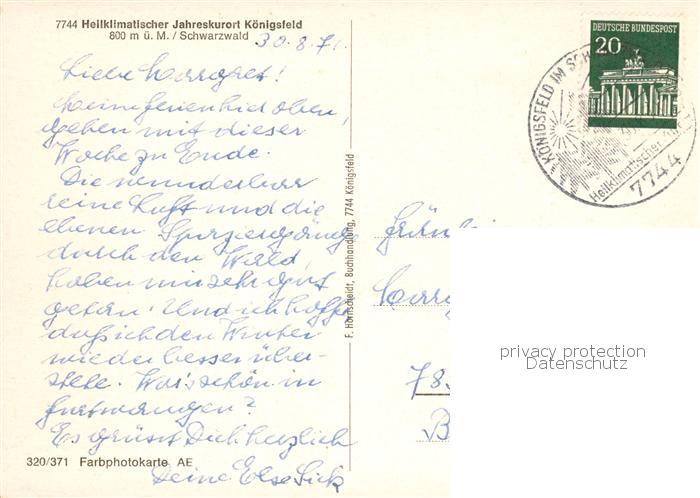 7744 Heilklimatischer Jahreskurort Königsfeld
800 m ü. M. / Schwarzwald
30.8.71.
Liebe Margret!
Meine Ferien hier oben
gehen mit dieser
Woche zu Ende.
Die wunderbar
reine Luft und die
ebenen Spaziergänge
durch den Wald,
haben mir sehr gut
getan. Und ich hoffe
daß ich den Winter
wieder besser über-
stehe. War's schön in
Furtwangen?
Es grüsst Dich herzlich
Deine Else Sick
320/371 Farbphotokarte AE
F. Hornscheidt, Buchhandlung, 7744 Königsfeld
DEUTSCHE BUNDESPOST
20
KÖNIGSFELD IM SCH
Heilklimatischer
7744
Fräulei
Marg
78
B
privacy protection
Datenschutz